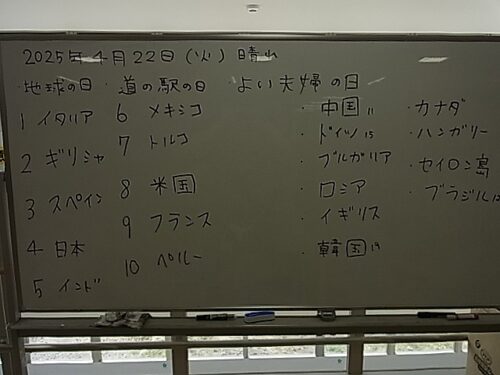 2025年4月22日(火)晴れ
・地球の日 ・道の駅の日 ・よい夫婦の日
1 イタリア
2 ギリシャ
3 スペイン
4 日本
5 インド
6 メキシコ
7 トルコ
8 米国
9 フランス
10 ペルー
・中国 11
・ドイツ 15
・ブルガリア
・ロシア
・イギリス
・韓国 19
・カナダ
・ハンガリー
・セイロン島
・ブラジル 12